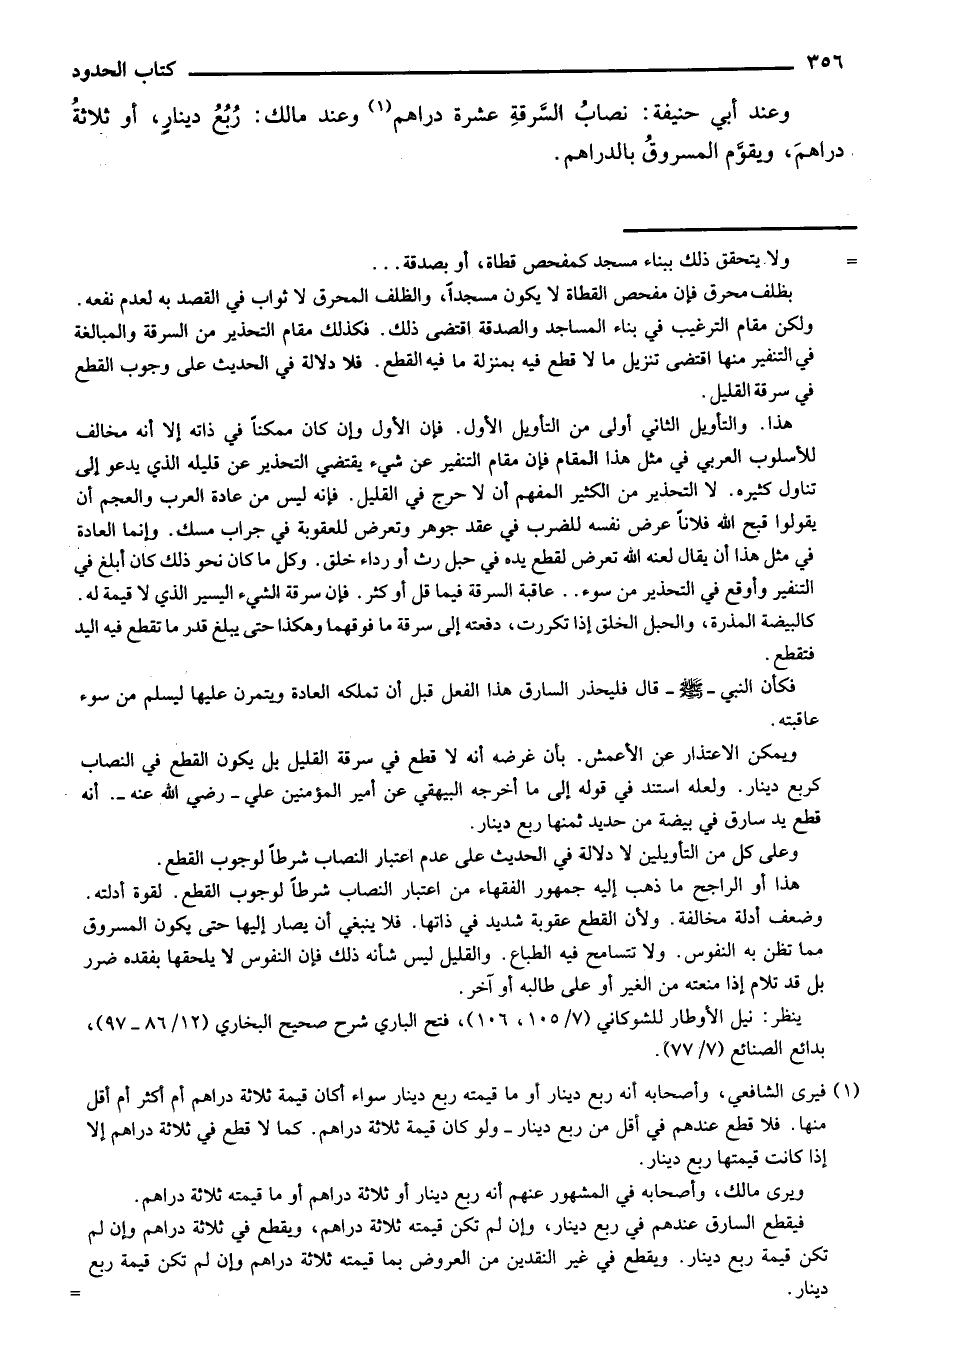 ٣٥٦ كتاب الحدود
وعند أبي حنيفة: نصابُ السَّرقةِ عشرة دراهم(١) وعند مالك: رُبُعُ دينارٍ، أو ثلاثةُ
دراهمَ، ويقوَّم المسروقُ بالدراهم.
= ولا يتحقق ذلك ببناء مسجد كمفحص قطاة، أو بصدقة...
بظلف محرق فإن مفحص القطاة لا يكون مسجداً، والظلف المحرق لا ثواب في القصد به لعدم نفعه.
ولكن مقام الترغيب في بناء المساجد والصدقة اقتضى ذلك. فكذلك مقام التحذير من السرقة والمبالغة
في التنفير منها اقتضى تنزيل ما لا قطع فيه بمنزلة ما فيه القطع. فلا دلالة في الحديث على وجوب القطع
في سرقة القليل.
هذا. والتأويل الثاني أولى من التأويل الأول. فإن الأول وإن كان ممكناً في ذاته إلا أنه مخالف
للأسلوب العربي في مثل هذا المقام فإن مقام التنفير عن شيء يقتضي التحذير عن قليله الذي يدعو إلى
تناول كثيره. لا التحذير من الكثير المفهم أن لا حرج في القليل. فإنه ليس من عادة العرب والعجم أن
يقولوا قبح الله فلاناً عرض نفسه للضرب في عقد جوهر وتعرض للعقوبة في جراب مسك. وإنما العادة
في مثل هذا أن يقال لعنه الله تعرض لقطع يده في حبل رث أو رداء خلق. وكل ما كان نحو ذلك كان أبلغ في
التنفير وأوقع في التحذير من سوء.. عاقبة السرقة فيما قل أو كثر. فإن سرقة الشيء اليسير الذي لا قيمة له.
كالبيضة المذرة، والحبل الخلق إذا تكررت، دفعته إلى سرقة ما فوقهما وهكذا حتى يبلغ قدر ما تقطع فيه اليد
فتقطع.
فكأن النبي ـ ﷺ ـ قال فليحذر السارق هذا الفعل قبل أن تملكه العادة ويتمرن عليها ليسلم من سوء
عاقبته.
ويمكن الاعتذار عن الأعمش. بأن غرضه أنه لا قطع في سرقة القليل بل يكون القطع في النصاب
كربع دينار. ولعله استند في قوله إلى ما أخرجه البيهقي عن أمير المؤمنين علي ـ رضي الله عنه ـ. أنه
قطع يد سارق في بيضة من حديد ثمنها ربع دينار.
وعلى كل من التأويلين لا دلالة في الحديث على عدم اعتبار النصاب شرطاً لوجوب القطع.
هذا أو الراجح ما ذهب إليه جمهور الفقهاء من اعتبار النصاب شرطاً لوجوب القطع. لقوة أدلته.
وضعف أدلة مخالفة. ولأن القطع عقوبة شديد في ذاتها. فلا ينبغي أن يصار إليها حتى يكون المسروق
مما تظن به النفوس. ولا تتسامح فيه الطباع. والقليل ليس شأنه ذلك فإن النفوس لا يلحقها بفقده ضرر
بل قد تلام إذا منعته من الغير أو على طالبه أو آخر.
ينظر: نيل الأوطار للشوكاني (٧/ ١٠٥، ١٠٦)، فتح الباري شرح صحيح البخاري (١٢/ ٨٦ ـ ٩٧)،
بدائع الصنائع (٧/ ٧٧).
(١) فيرى الشافعي، وأصحابه أنه ربع دينار أو ما قيمته ربع دينار سواء أكان قيمة ثلاثة دراهم أم أكثر أم أقل
منها. فلا قطع عندهم في أقل من ربع دينار ـ ولو كان قيمة ثلاثة دراهم. كما لا قطع في ثلاثة دراهم إلا
إذا كانت قيمتها ربع دينار.
ويرى مالك، وأصحابه في المشهور عنهم أنه ربع دينار أو ثلاثة دراهم أو ما قيمته ثلاثة دراهم.
فيقطع السارق عندهم في ربع دينار، وإن لم تكن قيمته ثلاثة دراهم، ويقطع في ثلاثة دراهم وإن لم
تكن قيمة ربع دينار. ويقطع في غير النقدين من العروض بما قيمته ثلاثة دراهم وإن لم تكن قيمة ربع
دينار. =